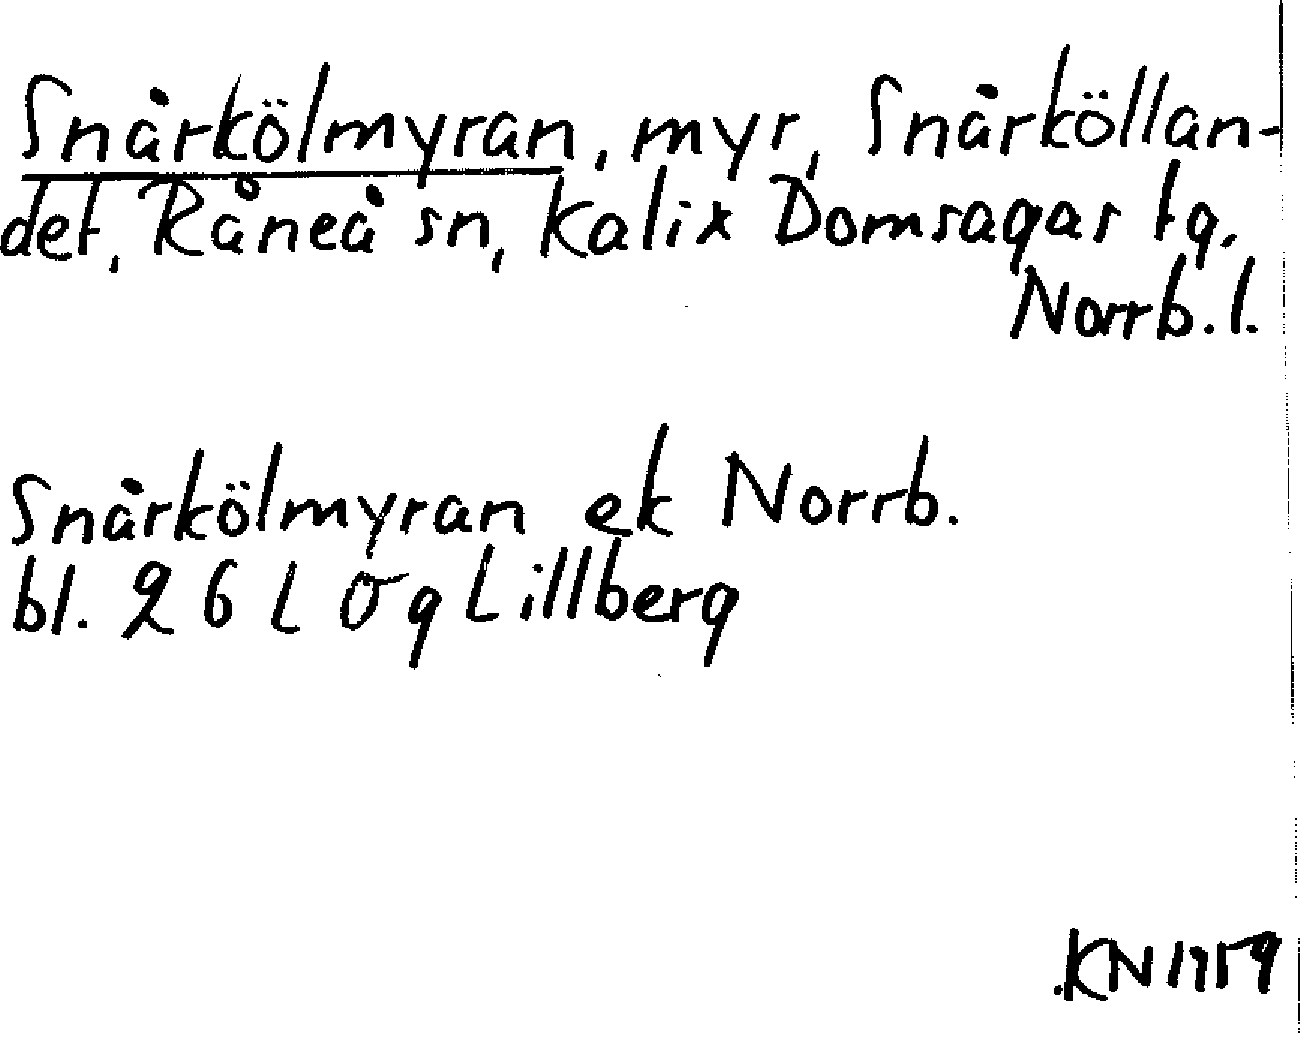 Snårkölmyran, myr, Snårköllan-
det, Råneå sn, Kalix Domsagas tg.
Norrb. l.
Snårkölmyran ek Norrb.
bl. 26 L Ög Lillberg
KN 1959